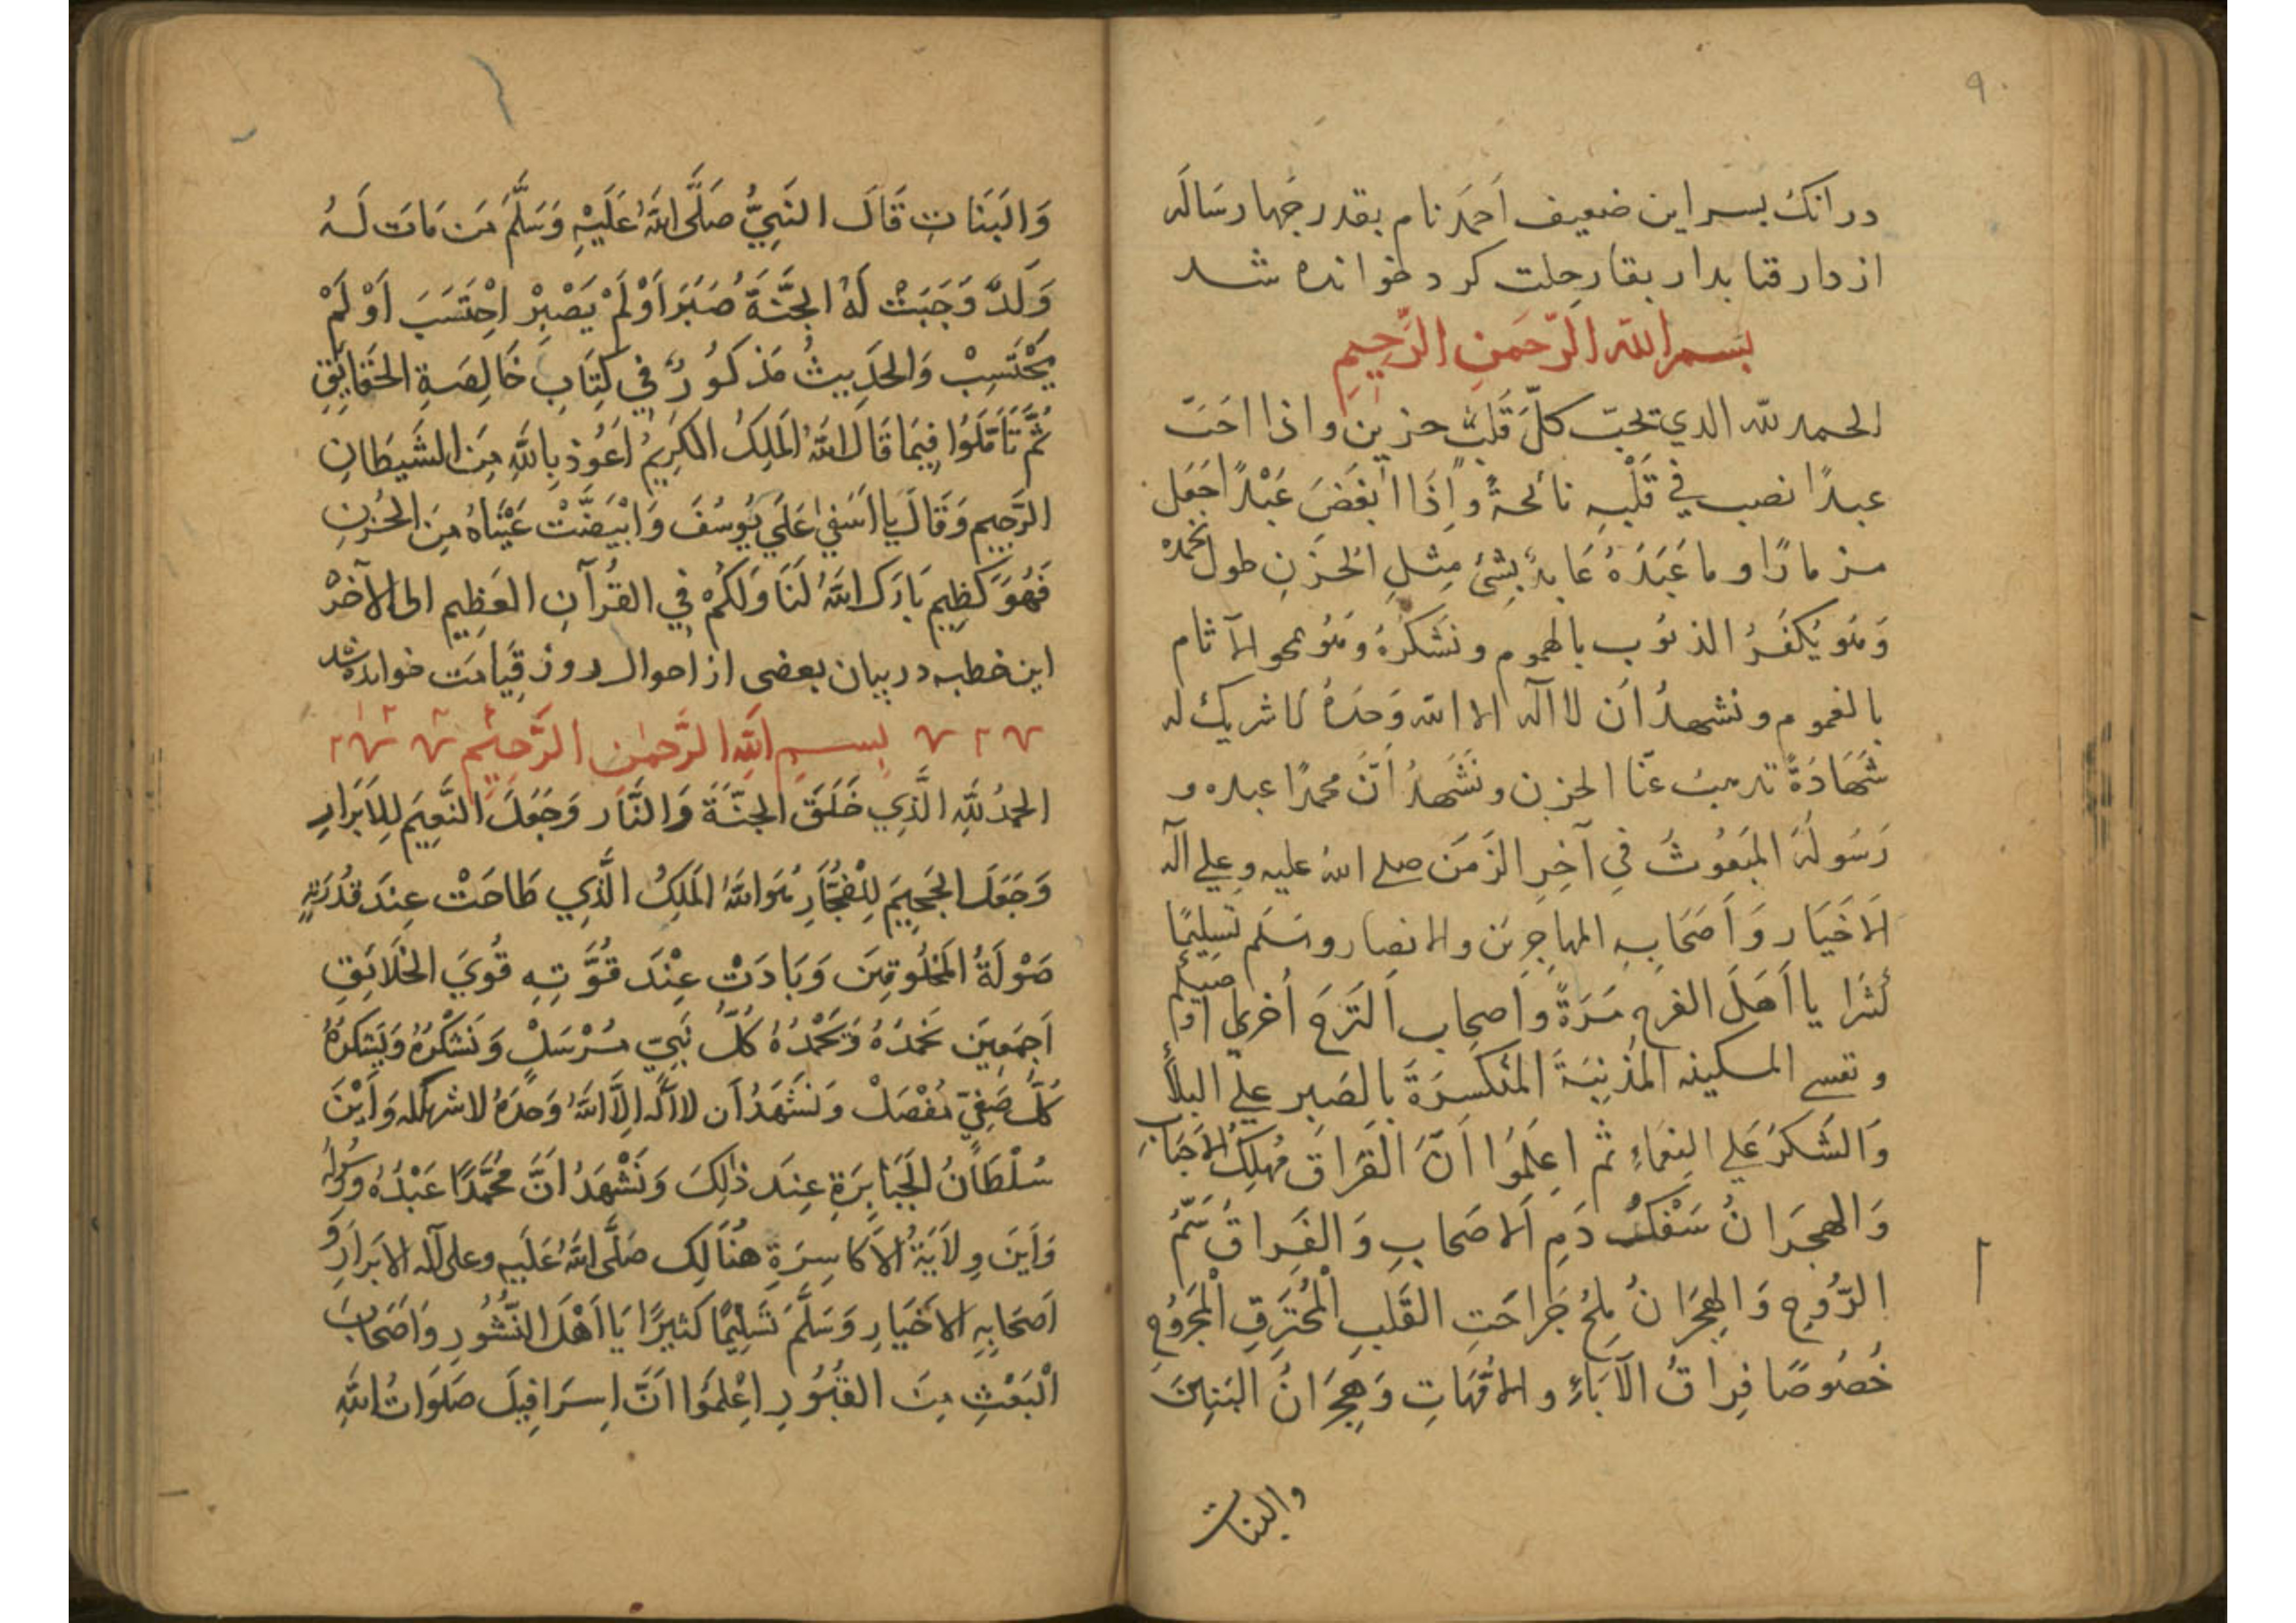 ۹۰
در انکه پسر این ضعیف اَحمَد نام بقدر چهار سَالَه
از دار فنا بدار بقا رحلت کرد خوانده شد
بسم الله الرّحمنِ الرَّحِيمِ
الحمد لله الذي يحبّ كلَّ قَلْبٍ حزين و اذا احَبّ
عبدًا نصب في قَلْبِهِ نائحةً و اِذَا اَبْغَضَ عَبْدًا جَعَل
مزمارًا و ما عَبَدَهُ عَابِدٌ بِشَيْ مِثلِ الحُزنِ طول نحمده
وَهُو يُكَفِّرُ الذنوُب بالهموم و نَشكُرُهُ وَهُو يمحو الآثام
بالغموم و نشهدُ اَن لا اله الا الله وَحدَهُ لا شريك له
شَهَادَةً تذهبُ عنّا الحزن و نَشْهَدُ اَنَّ محمدًا عبده و
رَسُولُهُ المَبعُوثُ فِي آخِرِ الزَمَن صلے اللهُ عليه و علي آله
الاَخيَار وَ اَصحَابِهِ المهاجِرِين و الانصار و سَلم تسليمًا
كثيرًا يا اَهَلَ الفرح مَرَةً و اَصحاب التَرَحِ اُخري اوصيكم
و نفسے المسكينه المذنِبَةَ المُنكَسِرَةَ بالصَبر علي البلاَء
وَالشكرِ عَلي النِعمَاءِ ثم اعلَمُوا اَنَّ الفَرَاقَ مُهلِكُ الاَحبَابِ
وَالهِجرَانُ سَفْكُ دَمِ الاَصحَابِ وَالفِرَاقُ سَمُّ
الرُّوحِ وَالهِجرَانُ مِلحُ جَرَاحَتِ القَلبِ المُحتَرِقِ المَجرُوحِ
خُصُوصًا فِراقُ الآبَاءِ و الاُمّهَاتِ وَهِجرَانُ البَنِينَ
والبنات
وَالبَنَاتِ قَالَ النَبِيُّ صَلَّى اللهُ عَلَيْهِ وَسَلَّمَ مَن مَاتَ لَهُ
وَلَدٌ وَجَبَتْ لَهُ الجَنَّةُ صَبَرَ اَوْ لَمْ يَصْبِرْ اِحْتَسَبَ اَوْ لَمْ
يَحْتَسِبْ وَالحَدِيثُ مَذكُورٌ فِي كِتَابِ خَالِصَةِ الحَقَايِقِ
ثُمَّ تَاَمَّلُوا فِيمَا قَالَ اللهُ المَلِكُ الكَرِيمُ اَعُوذ بِاللهِ مِنَ الشَيطَانِ
الرَّجِيمِ وَقَالَ يَا اَسَفي عَلَي يُوسُفَ وَابْيَضَّتْ عَيْنَاهُ مِنَ الحُزنِ
فَهُوَ كَظِيم بَارَكَ اللهُ لَنَا وَلَكُمْ فِي القُرآنِ العَظِيمِ الى الآخرْ
این خطبه در بیان بعضی از احوال روز قِیَامَت خوانده شد
بسمِ اللهِ الرَّحمٰنِ الرَّحِيمِ
الحمدُ لِلّهِ الَّذِي خَلَقَ الجَنَّةَ وَالنَّار وَجَعَلَ النَّعِيمَ لِلاَبرَارِ
وَجَعَلَ الجَحِيمَ لِلفُجَّارِ هُوَ اللهُ المَلِكُ الَّذِي طَاحَتْ عِندَ قُدرَتِهِ
صَوْلَةُ المَخلُوقِينَ وَبَادَتْ عِنْدَ قُوَّتِهِ قُوَي الخَلائِقِ
اَجمَعِينَ نَحمَدُهُ وَيَحْمَدُهُ كُلُّ نَبِيّ مُرْسَلْ وَنَشْكُرُهُ وَيَشكُرُهُ
كُلُّ صَفِيّ مُفْضَلْ وَنَشهَدُ اَن لا اله اِلَّا اللهُ وَحدَهُ لا شريك له وَاَيْنَ
سُلْطَانُ الجَبَابِرَةِ عِندَ ذٰلِكَ وَنَشْهَدُ اَنَّ مُحَمَّدًا عَبْدُهُ وَرَسُولُه
وَاَينَ وِلاَيَةُ الاَكَاسِرَةِ هُنَالِك صَلَّى اللهُ عَلَيهِ وعلى آله الابرَارِ وَ
اَصحَابِهِ الاَخيَارِ وَسَلَّمَ تَسلِيمًا كَثِيرًا يَا اَهْلَ النُّشُورِ وَاَصحَابَ
الْبَعْثِ مِنَ القُبُورِ اِعْلَمُوا اَنَّ اِسرَافِيلَ صَلَوَاتُ اللهِ